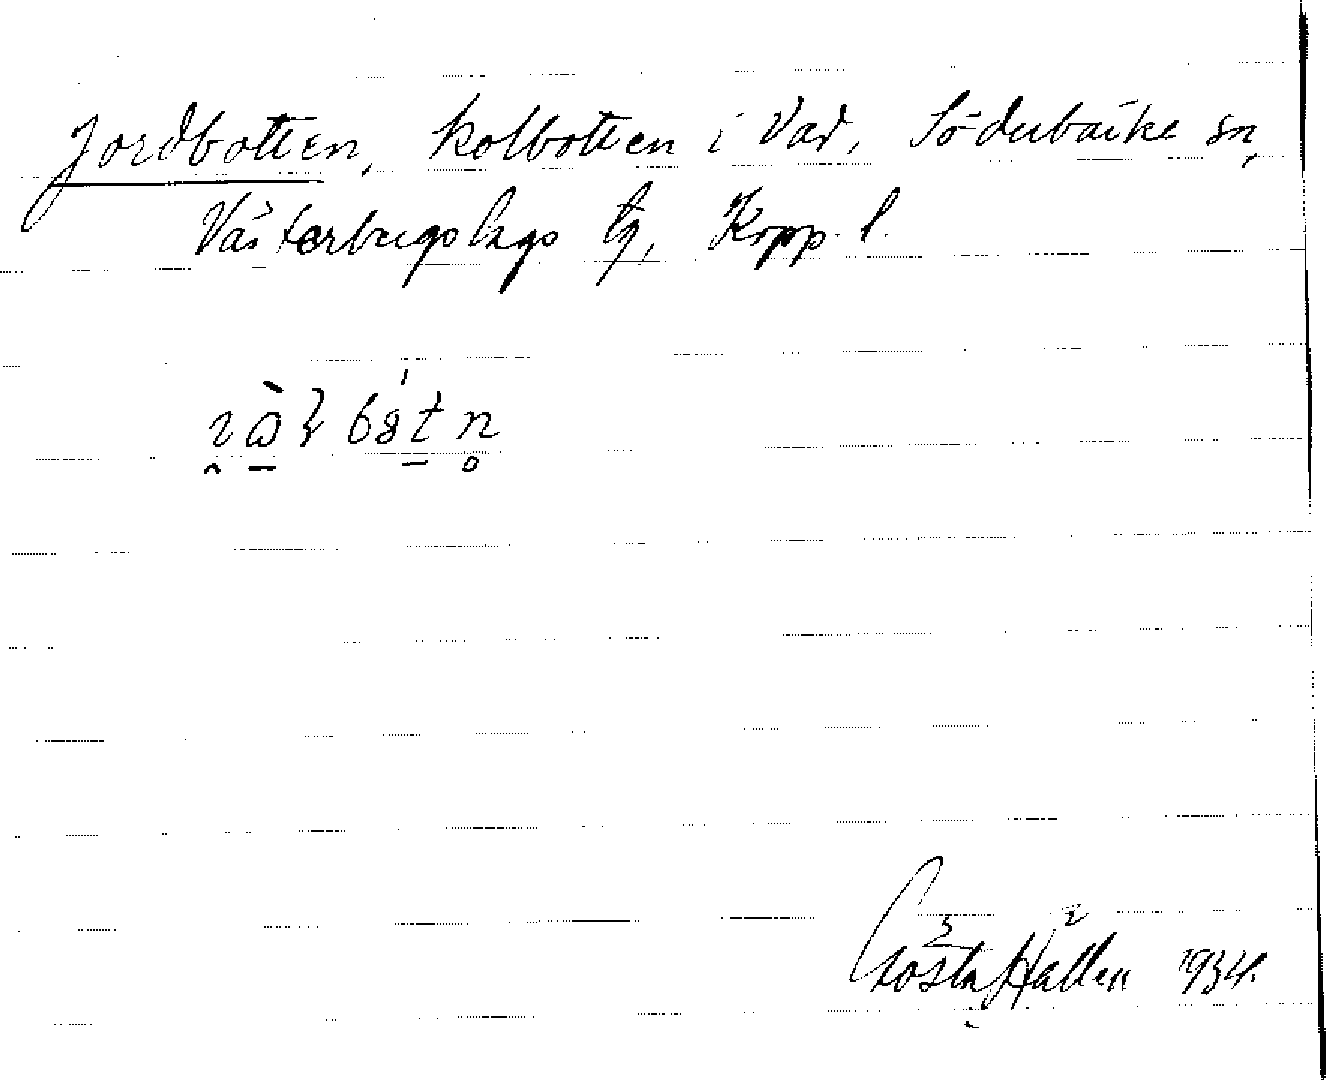 Jordbotten, kolbotten i Vad, Söderbärke sn,
Västerbergslags tg, Kopp. l.
Gösta Hallén 1934.